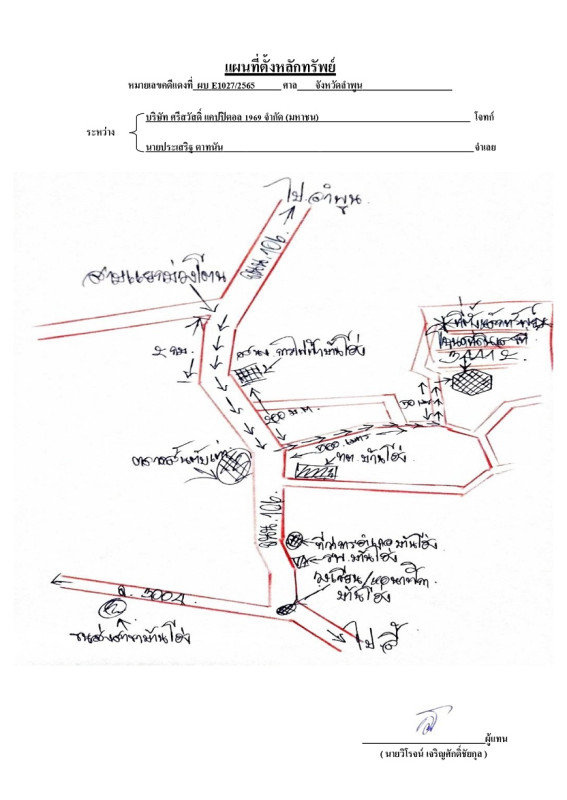 แผนที่ตั้งหลักทรัพย์
หมายเลขคดีแดงที่ ผบ E1027/2565 ศาล จังหวัดลำพูน
ระหว่าง
บริษัท ศรีสวัสดิ์ แคปปิตอล 1969 จำกัด (มหาชน) โจทก์
นายประเสริฐ ตาทนัน จำเลย
ไป ลำพูน
ถนน 106
สามแยกม่วงโตน
2 กม.
การไฟฟ้าบ้านโฮ่ง
ที่ตั้งหลักทรัพย์
200 ม.
50 เมตร
700 เมตร
ทต. บ้านโฮ่ง
ถนน 106
ที่ว่าการอำเภอบ้านโฮ่ง
รพ. บ้านโฮ่ง
วงเวียน/หอนาฬิกา
บ้านโฮ่ง
ขนส่งสาขาบ้านโฮ่ง
ไป ลี้
ผู้แทน
( นายวิโรจน์ เจริญศักดิ์ชัยกุล )